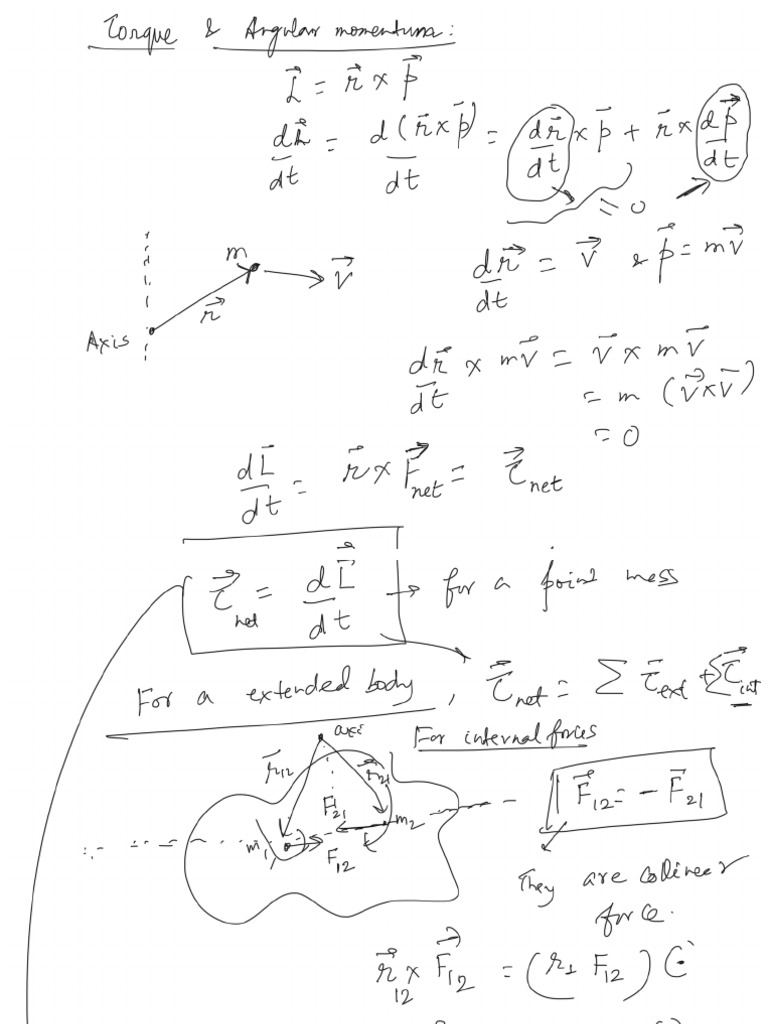 Torque & Angular momentum:
L⃗ = r⃗ × p⃗
dL⃗/dt = d(r⃗ × p⃗)/dt = dr⃗/dt × p⃗ + r⃗ × dp⃗/dt
= 0
m
v⃗
r⃗
Axis
dr⃗/dt = v⃗ & p⃗ = mv⃗
dr⃗/dt × mv⃗ = v⃗ × mv⃗
= m (v⃗ × v⃗)
= 0
dL⃗/dt = r⃗ × F⃗net = τ⃗net
τ⃗net = dL⃗/dt → for a point mess
For a extended body, τ⃗net = Σ τ⃗ext + Στ⃗int
For internal forces
axis
r⃗12
r⃗21
F21
m2
m1
F12
F⃗12 = - F⃗21
They are colinear
force.
r⃗12 × F⃗12 = (r⊥ F12)